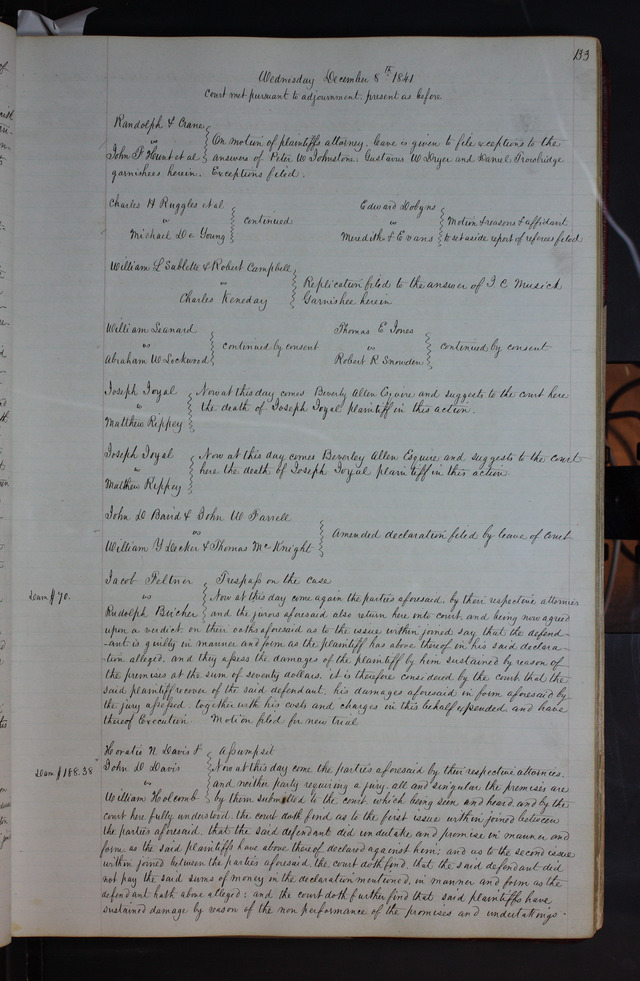 133
Wednesday December 8th 1841
Court met pursuant to adjournment. present as before
Randolph & Crane
vs
On motion of plaintiffs attorney, leave is given to file exceptions to the
John F Hunt et al answers of Peter W Johnstone, Gustavus W Dryer and Daniel Trowbridge
garnishees herein. Exceptions filed.
Charles H Ruggles et al
vs continued
Michael De Young
Edward Dobyns
vs Motion & reasons & affidavit
Meredith & Evans to set aside report of referees filed
William L Sublette & Robert Campbell
vs Replication filed to the answer of T C Musick
Charles Keneday Garnishee herein
William Leanard
vs continued by consent
Abraham W Lockwood
Thomas E Jones
vs continued by consent
Robert R Snowden
Joseph Joyal Now at this day comes Beverly Allen Esquire and suggests to the court here
vs the death of Joseph Joyal plaintiff in this action.
Matthew Rippey
Joseph Joyal Now at this day comes Beverley Allen Esquire and suggests to the court
vs here the death of Joseph Joyal plaintiff in this action
Matthew Rippey
John D Baird & John W Farrell
vs Amended declaration filed by leave of Court
William Y Decker & Thomas McKnight
Jacob Feltner Trespass on the case
Dam $70. vs Now at this day come again the parties aforesaid, by their respective attornies
Rudolph Bircher and the jurors aforesaid also return here into court and being now agreed
upon a verdict on their oaths aforesaid as to the issue within joined say that the defend-
-ant is guilty in manner and form as the plaintiff has above thereof in his said declara-
-tion alleged, and they assess the damages of the plaintiff by him sustained by reason of
the premises at the sum of seventy dollars. it is therefore considered by the court that the
said plaintiff recover of the said defendant, his damages aforesaid in form aforesaid by
the jury assessed, together with his costs and charges in this behalf expended and have
thereof Execution Motion filed for new trial
Horatio N Davis & Assumpsit
Dam $188.38 John D Davis Now at this day come the parties aforesaid by their respective attornies,
vs and neither party requiring a jury, all and singular the premises are
William Holcomb by them submitted to the court which being seen and heard and by the
court here fully understood, the court doth find as to the first issue within joined between
the parties aforesaid, that the said defendant did undertake and promise in manner and
form as the said plaintiffs have above thereof declared against him; and as to the second issue
within joined between the parties aforesaid, the court doth find, that the said defendant did
not pay the said sums of money in the declaration mentioned, in manner and form as the
defendant hath above alleged: and the court doth further find that said plaintiffs have
sustained damage by reason of the non performance of the promises and undertakings